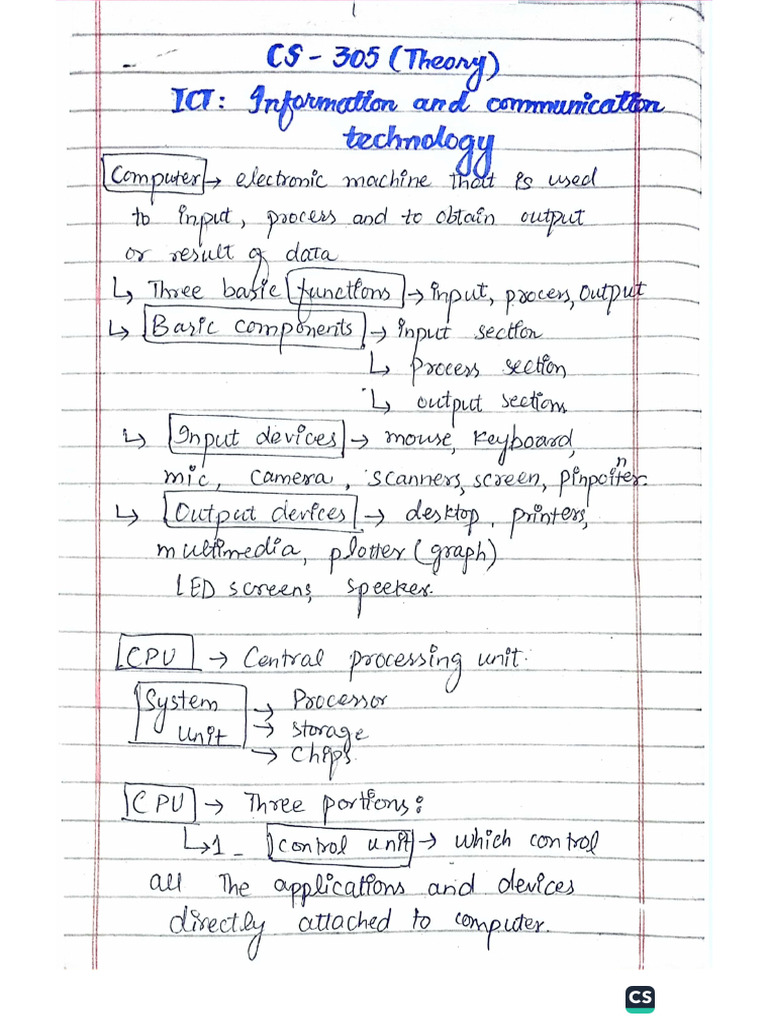 1
CS - 305 (Theory)
ICT: Information and communication
technology
Computer → electronic machine that is used
to input, process and to obtain output
or result of data
↳ Three basic functions → input, process, output
↳ Basic components → input section
↳ process section
↳ output section
↳ Input devices → mouse, keyboard,
mic, camera, scanners, screen, pinpointer.
↳ Output devices → desktop, printers,
multimedia, plotter (graph)
LED screens, speeker.
CPU → Central processing unit.
System Unit → Processor
→ storage
→ Chips.
CPU → Three portions:
↳ 1 - control unit → which control
all the applications and devices
directly attached to computer.
CS